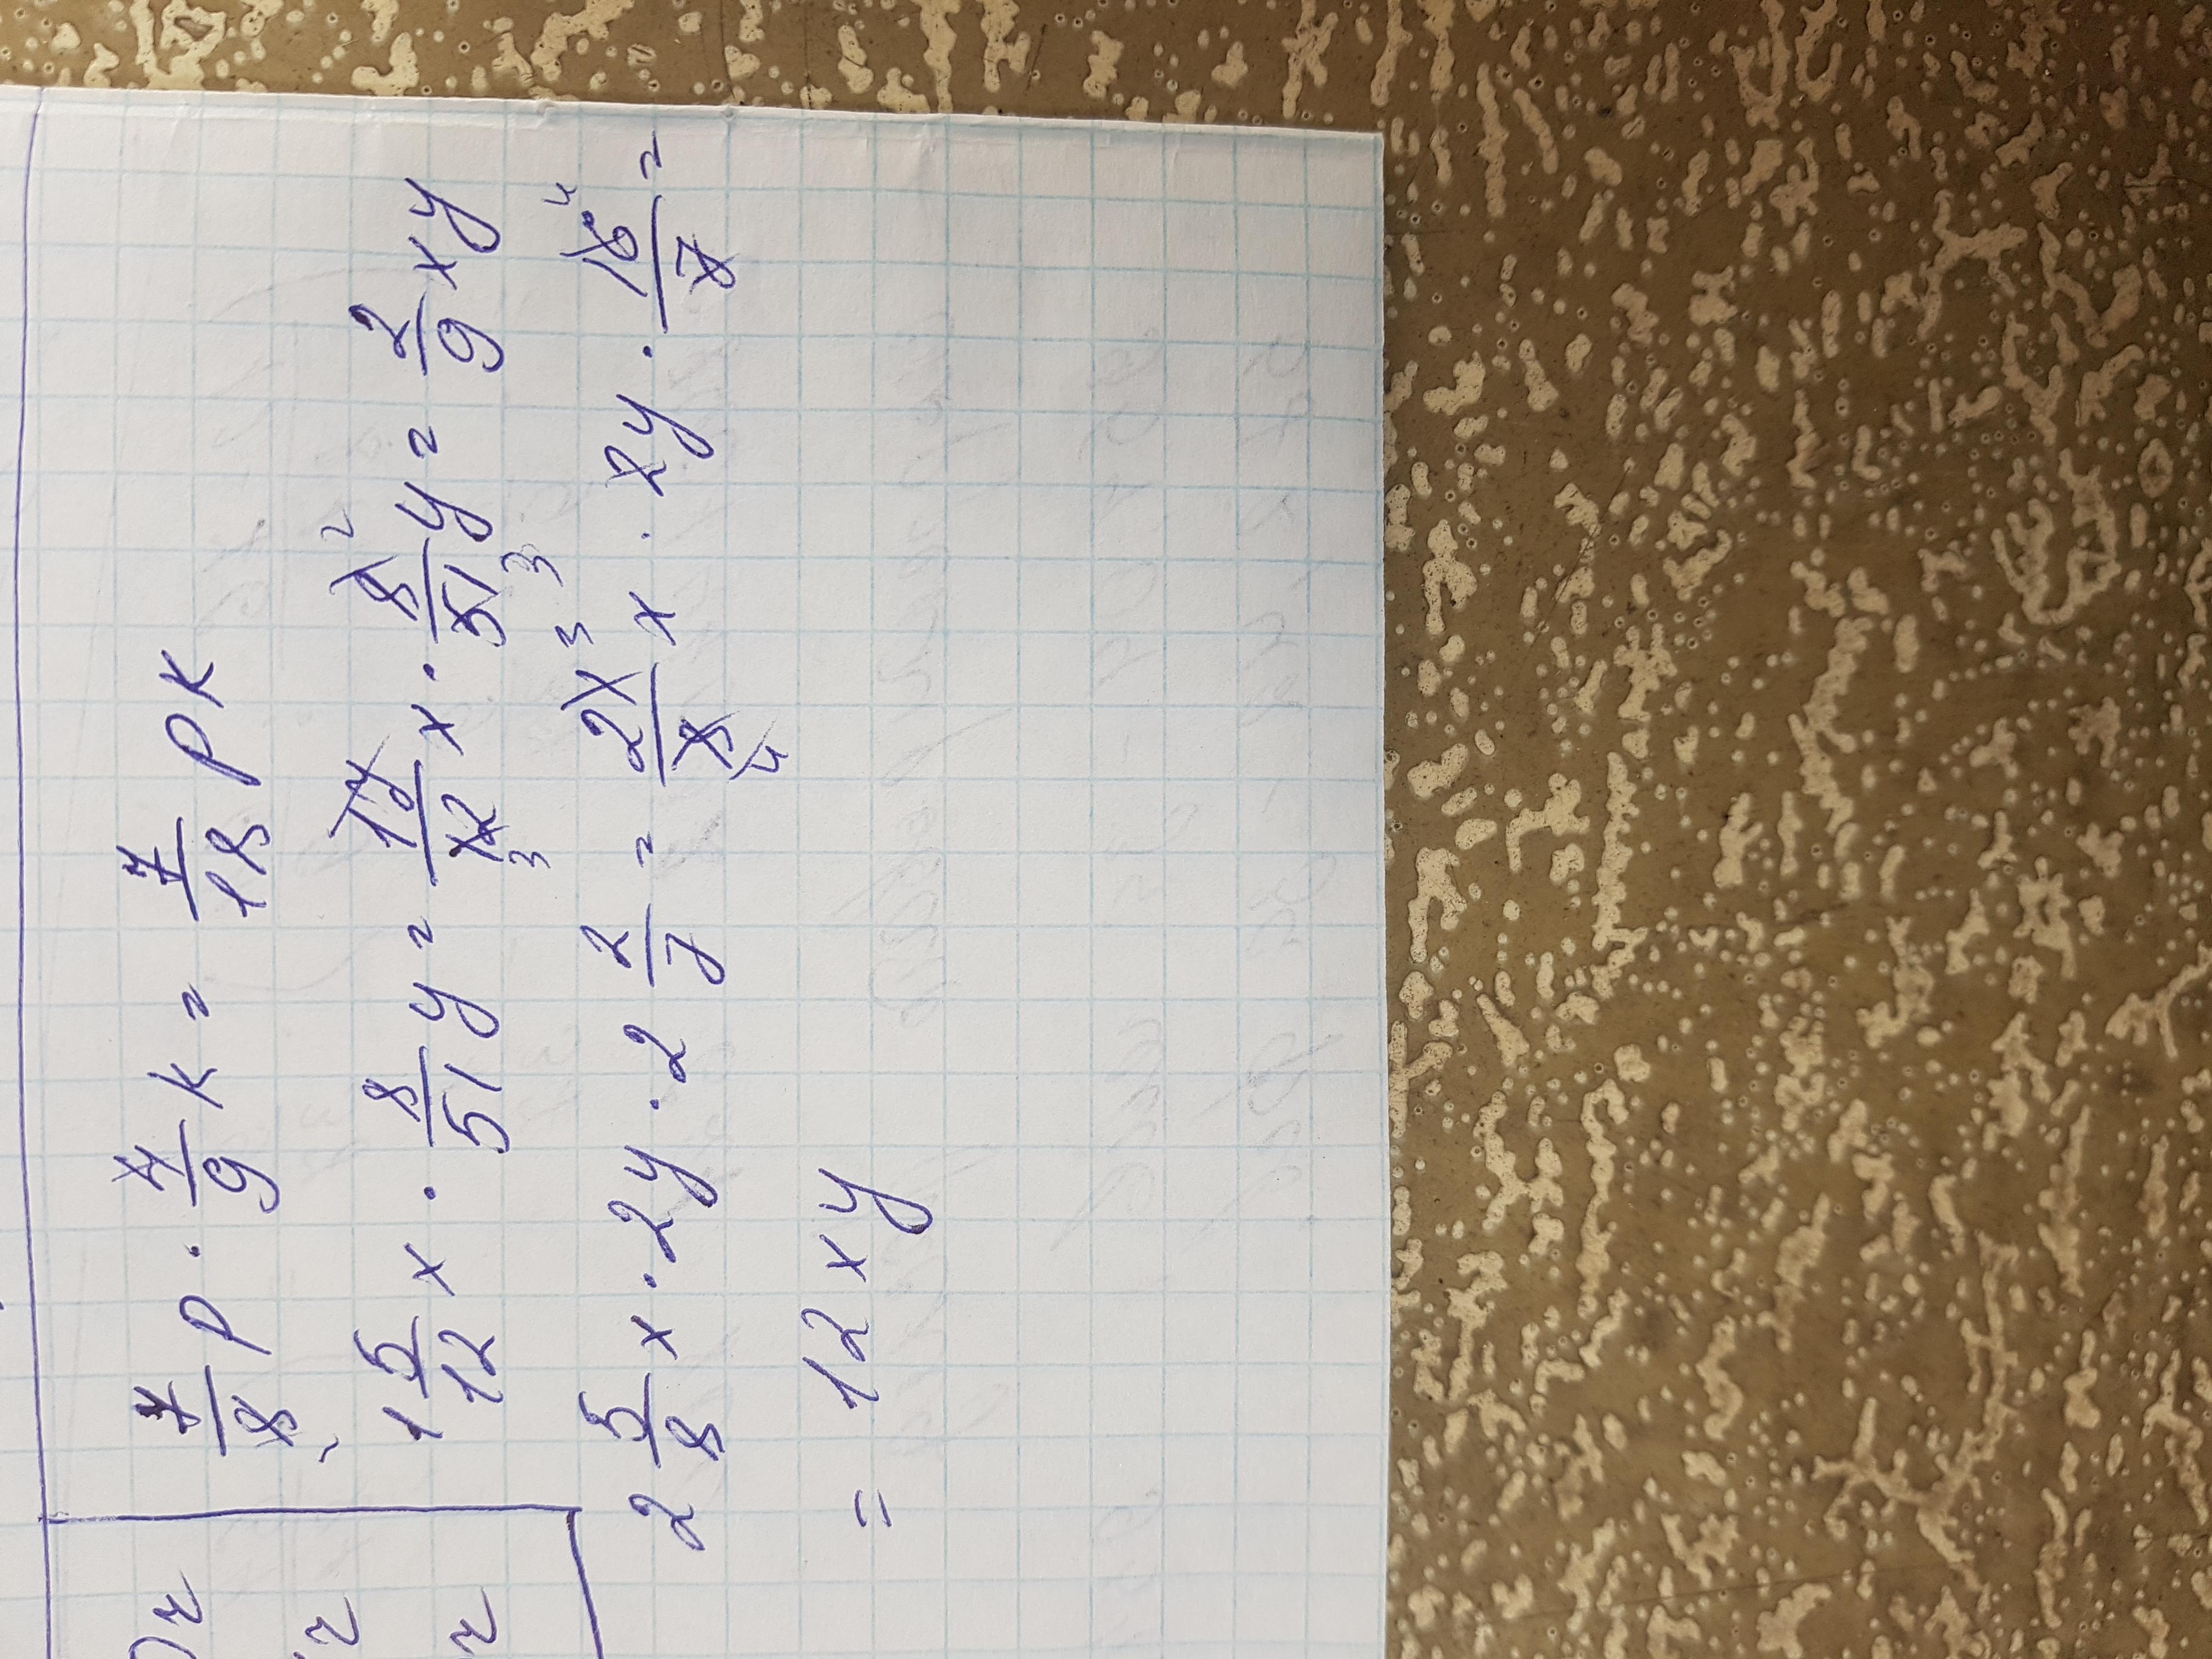 7/8 p · 4/9 k = 7/18 pk
1 5/12 x · 8/51 y = 17/12 x · 8/51 y = 2/9 xy
2 5/8 x · 2y · 2 2/7 = 21/8 x · 2y · 16/7 =
= 12 xy